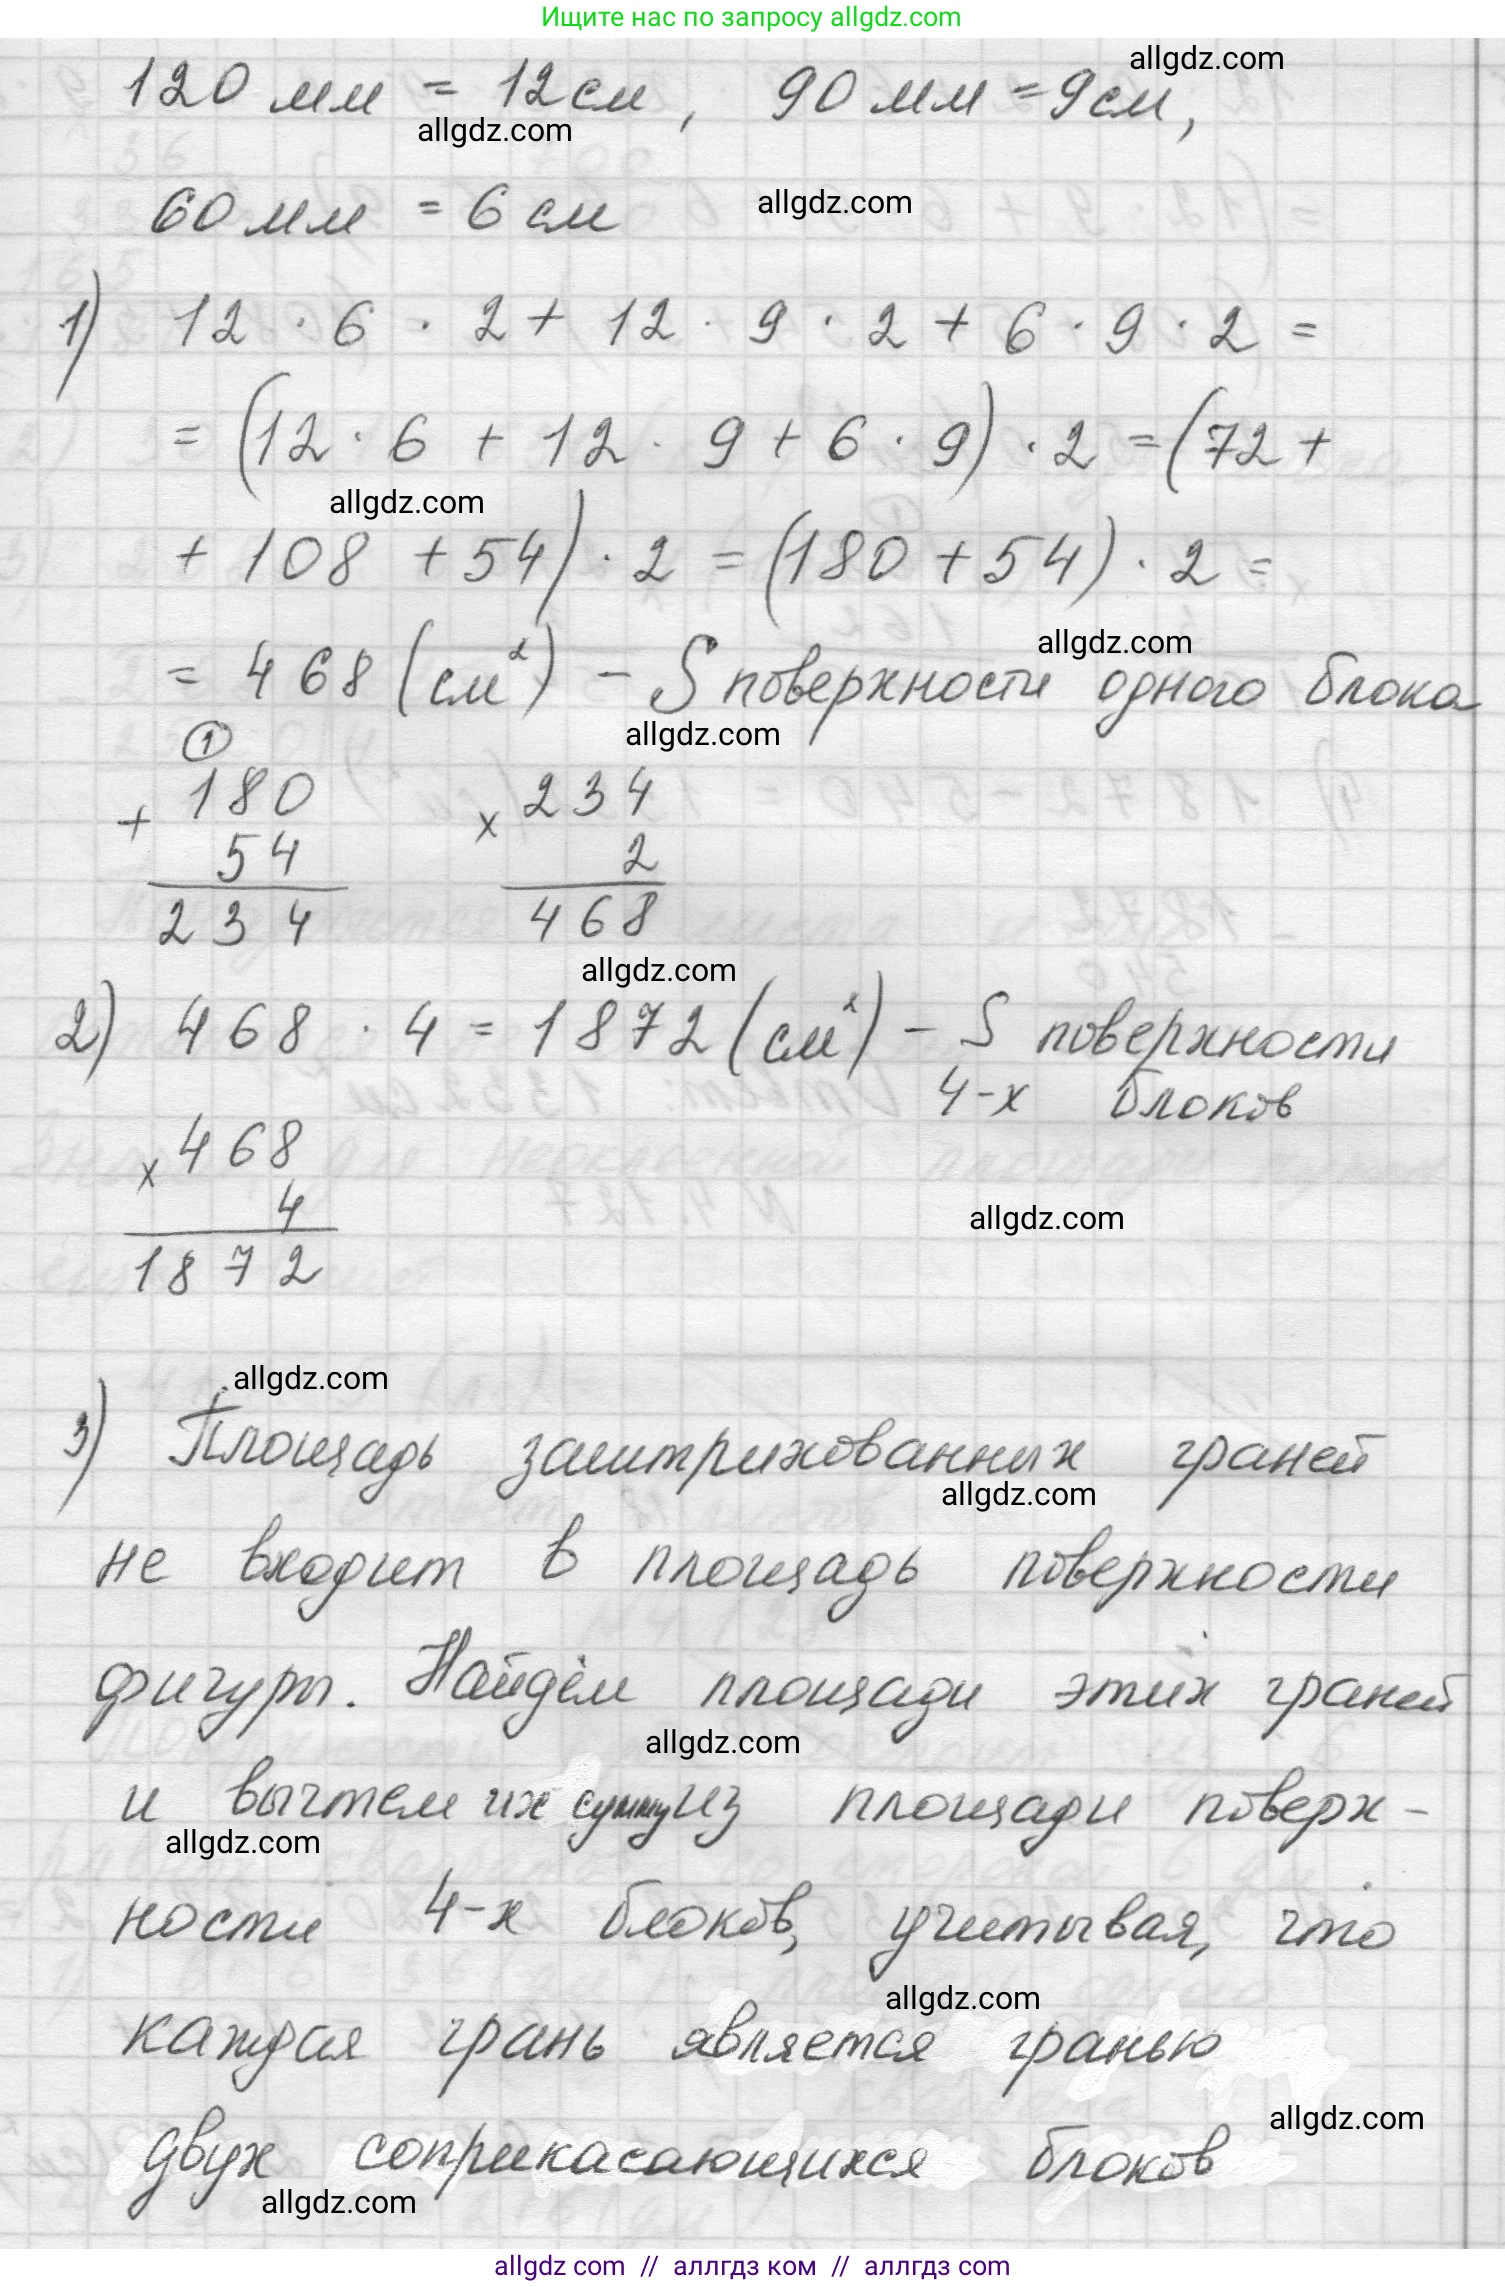 Ищите нас по запросу allgdz.com
allgdz.com
120 мм = 12 см, 90 мм = 9 см,
allgdz.com
60 мм = 6 см
allgdz.com
1) 12 · 6 · 2 + 12 · 9 · 2 + 6 · 9 · 2 =
= (12 · 6 + 12 · 9 + 6 · 9) · 2 = (72 +
allgdz.com
+ 108 + 54) · 2 = (180 + 54) · 2 =
allgdz.com
= 468 (см²) - S поверхности одного блока
allgdz.com
1
+ 180 × 234
54 2
234 468
allgdz.com
2) 468 · 4 = 1872 (см²) - S поверхности
4-х блоков
× 468
4
allgdz.com
1872
allgdz.com
3) Площадь заштрихованных граней
allgdz.com
не входит в площадь поверхности
фигуры. Найдём площади этих граней
allgdz.com
и вычтем их сумму из площади поверх-
allgdz.com
ности 4-х блоков, учитывая, что
allgdz.com
каждая грань является гранью
allgdz.com
двух соприкасающихся блоков
allgdz.com
allgdz.com // аллгдз ком // аллгдз.com